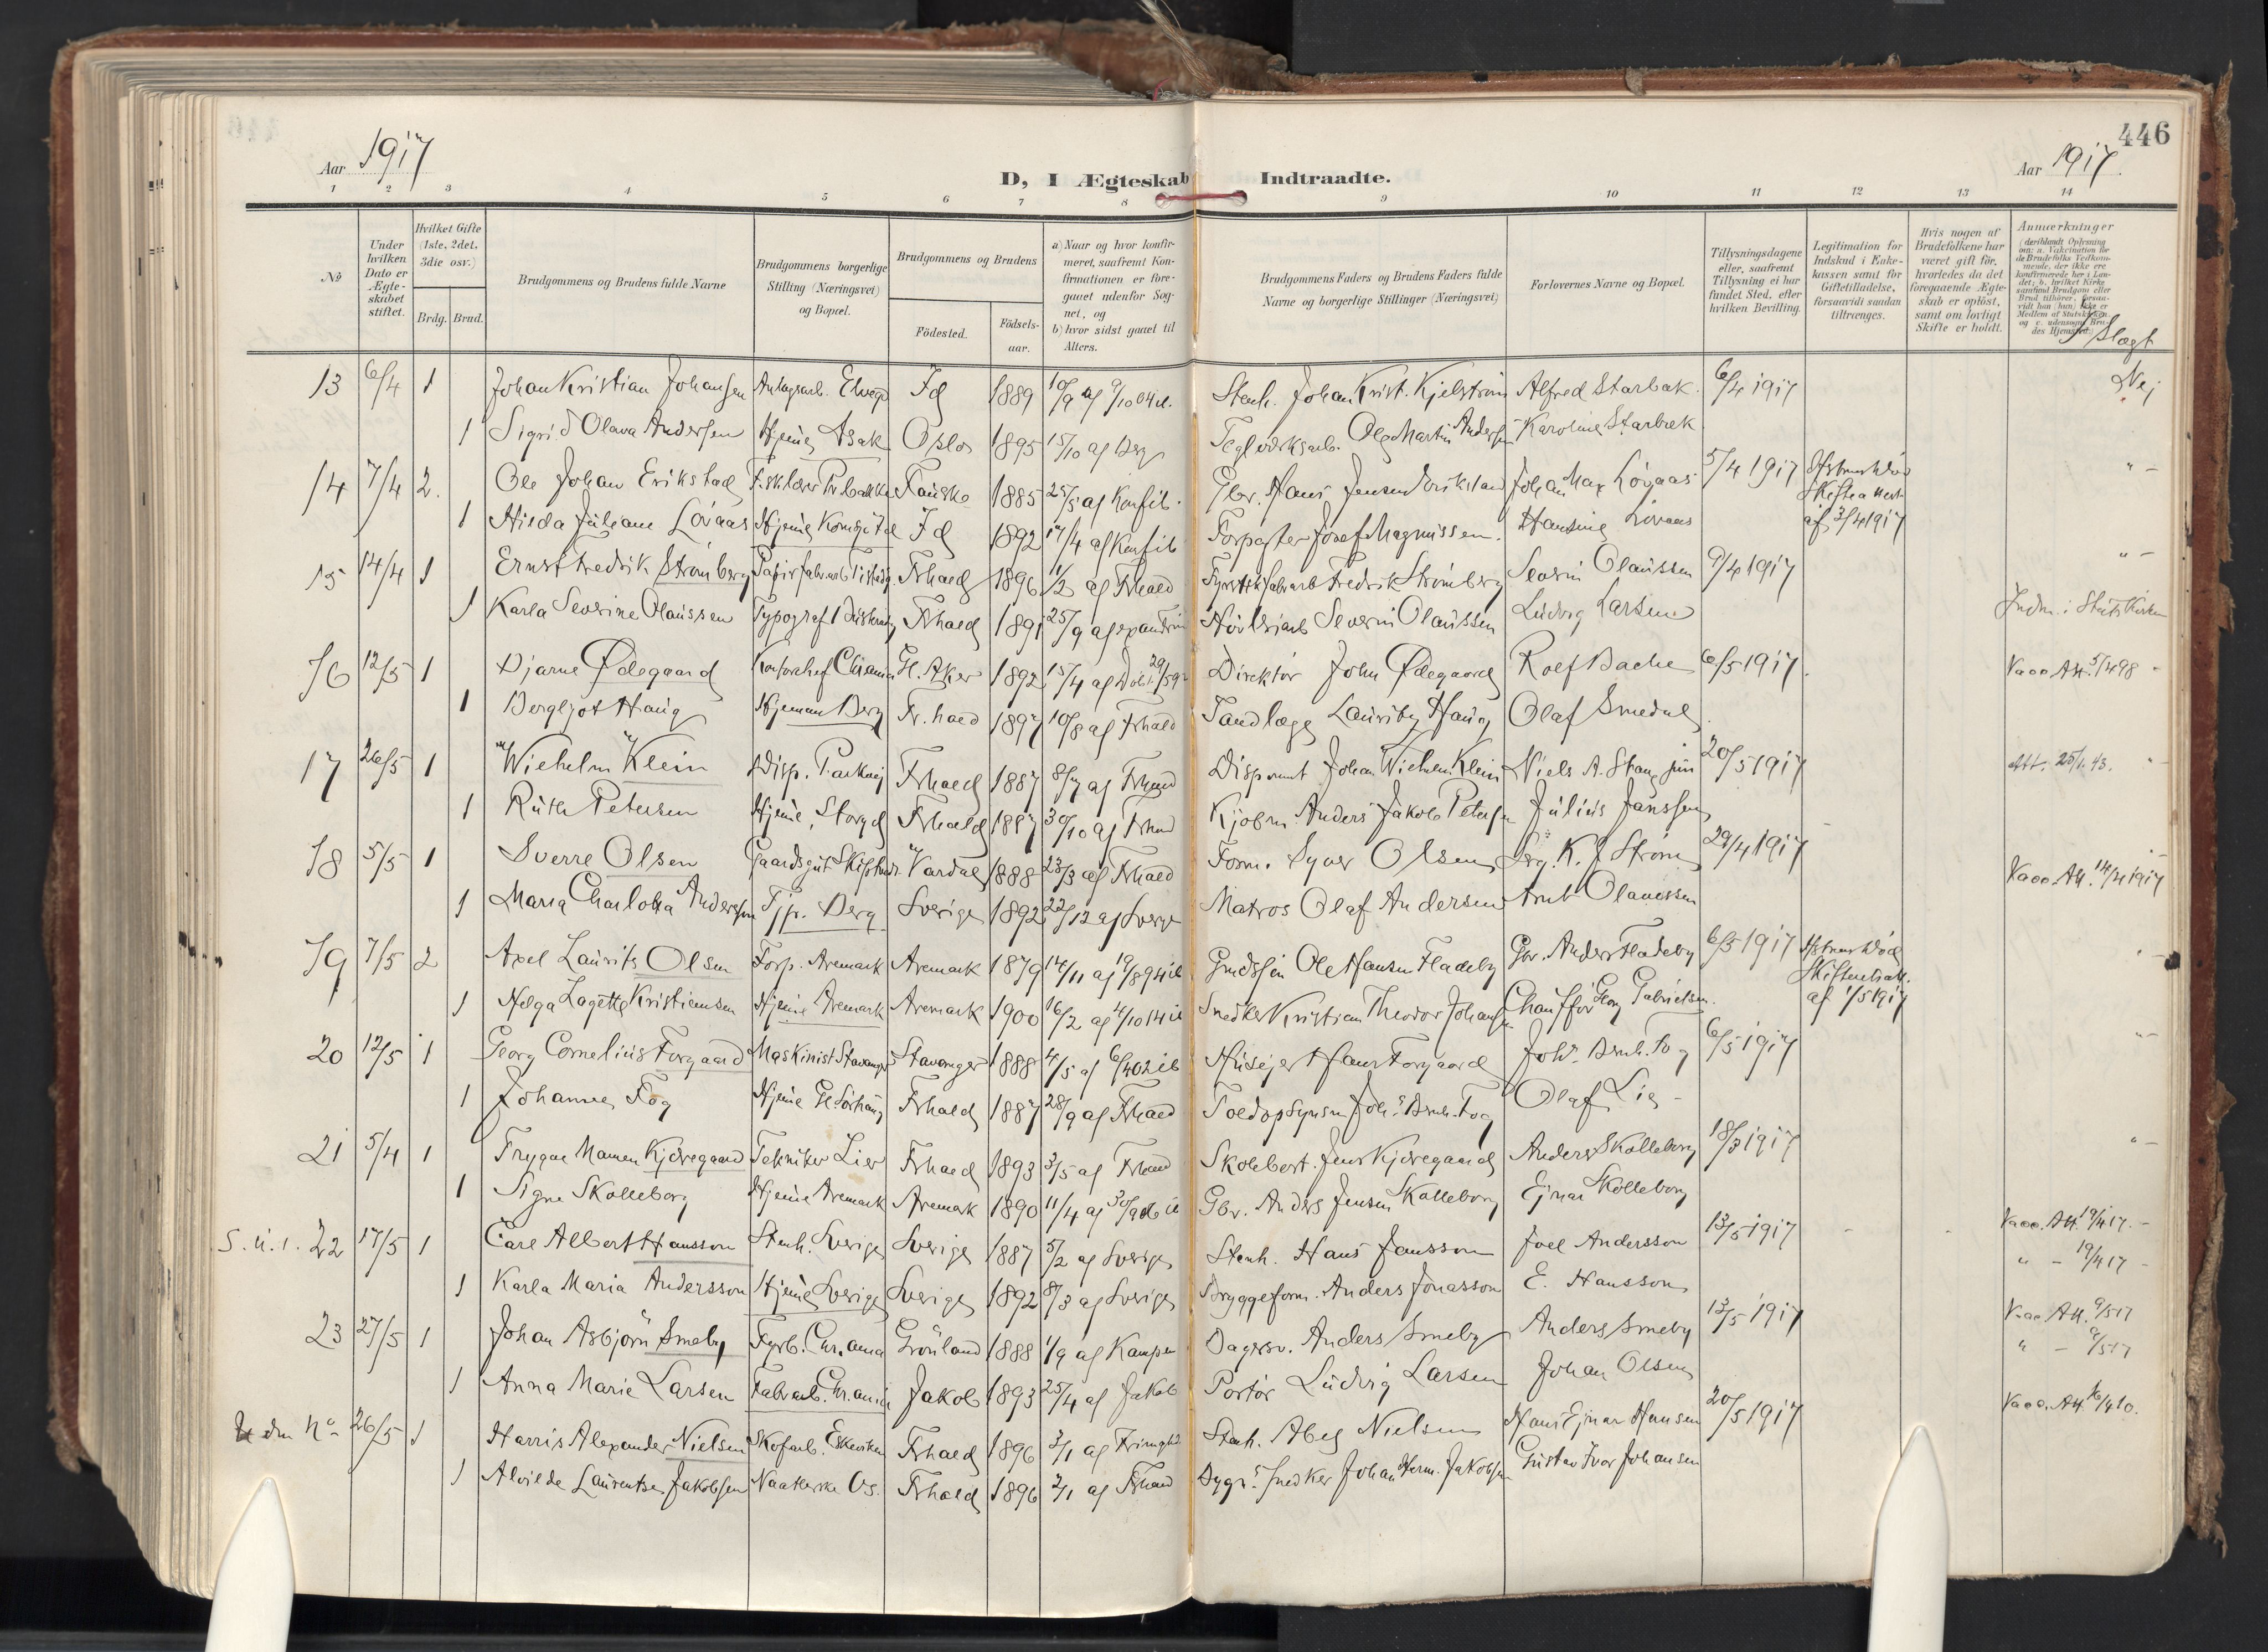 446
Aar 1917
D, I Ægteskab Indtraadte.
Aar 1917.
1 2 3 4 5 6 7 8 9 10 11 12 13 14
№
Under hvilken Dato er Ægteskabet stiftet.
Hvilket Gifte (1ste, 2det, 3die osv.)
Brdg. Brud.
Brudgommens og Brudens fulde Navne
Brudgommens borgerlige Stilling (Næringsvei) og Bopæl.
Brudgommens og Brudens
Födested.
Födselsaar.
a) Naar og hvor konfirmeret, saafremt Konfirmationen er foregaaet udenfor Sognet, og
b) hvor sidst gaaet til Alters.
Brudgommens Faders og Brudens Faders fulde Navne og borgerlige Stillinger (Næringsvei)
Forlovernes Navne og Bopæl.
Tillysningsdagene eller, saafremt Tillysning ei har fundet Sted, efter hvilken Bevilling.
Legitimation for Indskud i Enkekassen samt for Giftetilladelse, forsaavidt saadan tiltrænges.
Hvis nogen af Brudefolkene har været gift för, hvorledes da det foregaaende Ægteskab er oplöst, samt om lovligt Skifte er holdt.
Anmærkninger
Slægt
13 6/4 1 Johan Kristian Johansen Id 1889 Stenh. Johan Krist. Kjelström Alfred Starbak. 6/4 1917 Nej
1 Sigrid Olava Andersen Hjeme Asak Oslo 1895 15/10 af Berg Teglverksarb. Ole Martin Andersen Karoline Starbæk
14 7/4 2. Ole Johan Erikstad Fauske 1885 25/5 af Konfib. Gbr. Hans Jensen Erikstad Johan Max Lövaas 5/4 1917 "-
1 Hilda Juliane Lövaas Hjeme Id 1892 17/4 af Konfib Forpagter Josef Magnussen. Hansine Lövaas af 3/4 1917
15 14/4 1 Ernst Fredrik Strömberg Papirfabr.arb Tistedg. Frhald 1896 1/2 af Frhald Fredrik Strömberg Severin Olaussen 9/4 1917 "-
1 Karla Severine Olaussen Typograf Frhald 1891 25/9 af Severin Olaussen Ludvig Larsen Indm. i Statskirken
16 12/5 1 Bjarne Ødegaard Kontorchef Chrania Gl. Aker 1892 15/4 af Direktör John Ødegaard Rolf Bache 6/5 1917. Vacc. Att. 5/4 98 -
1 Bergljot Haug Hjemme Berg Fr.hald 1897 10/8 af Frhald Tandlæge Lauritz Haug Olaf Smedal
17 26/5 1 Wilhelm Klein Disp. Parkvej Frhald 1887 8/7 af Frhald Disponent Johan Wilhelm Klein Niels A. Stang jun 20/5 1917 Att. 25/1.43. "-
1 Ruth Petersen Hjeme, Storgd Frhald 1887 30/10 af Frhald Kjöbm. Anders Jakob Petersen Julius Janssen
18 5/5 1 Sverre Olsen Vardal 1888 23/3 af Frhald Form. Syver Olsen K. J Ström 29/4 1917
1 Maria Charlotta Andersson Tjp. Berg Sverige 1892 22/12 af Sverge Matros Olaf Andersen Arnt Olaussen Vacc. Att. 14/4 1917
19 7/5 2 Axel Laurits Olsen Forp. Aremark Aremark 1879 14/11 af 19/8 94 ib Grdssön Ole Hansen Fladeby Gbr. Anders Fladeby 6/5 1917 "-
1 Helga Lagette Kristiansen Hjeme Aremark Aremark 1900 16/2 af 4/10 14 ib Snedker Kristian Theodor Johansen Chaufför Georg Gabrielsen. af 1/5 1917
20 12/5 1 Georg Cornelius Forgaard Maskinist Stavanger Stavanger 1888 4/5 af 6/4 02 ib Husejer Hans Forgaard Johs. Brnh. Fog 6/5 1917 "-
1 Johanne Fog Hjeme Frhald 1887 28/9 af Frhald Toldopsynsm Johs. Brnh. Fog Olaf Lie -
21 5/4 1 Trygve Mamen Kjöregaard Tekniker Lier Frhald 1893 3/5 af Frhald Skolebest. Jens Kjöregaard Anders Skolleborg 18/3 1917 "-
1 Signe Skolleborg Hjeme Aremark Aremark 1890 11/4 af Gbr. Anders Jensen Skolleborg Ejnar Skolleborg
S.u.1. 22 17/5 1 Carl Albert Hansson Stenh. Sverige Sverige 1887 5/2 af Sverige Stenh. Hans Jansson Joel Andersson 13/5 1917 Vacc. Att. 19/4 17. -
1 Karla Maria Andersson Hjeme Sverige Sverige 1892 8/3 af Sverige Bryggeform. Anders Jonasson E. Hansson " - 19/4 17 -
23 27/5 1 Johan Asbjörn Smeby Fyrb. Chr.ania Grönland 1888 1/9 af Kampen Dagarb. Anders Smeby Anders Smeby 13/5 1917 Vac. Att. 9/5 17
1 Anna Marie Larsen Fabr.arb. Chr.ania Jakob 1893 25/4 af Jakob Portör Ludvig Larsen Johan Olsen " - 9/5 17
Uden No 26/5 1 Harris Alexander Nielsen Skofarb. Frhald 1896 2/1 af Stenh. Abel Nielsen Hans Ejnar Hansen 20/5 1917 Vacc. Att.
1 Alvilde Laurentse Jakobsen Os. Frhald 1896 2/1 af Frhald Snedker Johan Herm. Jakobsen Gustav Ivar Johansen